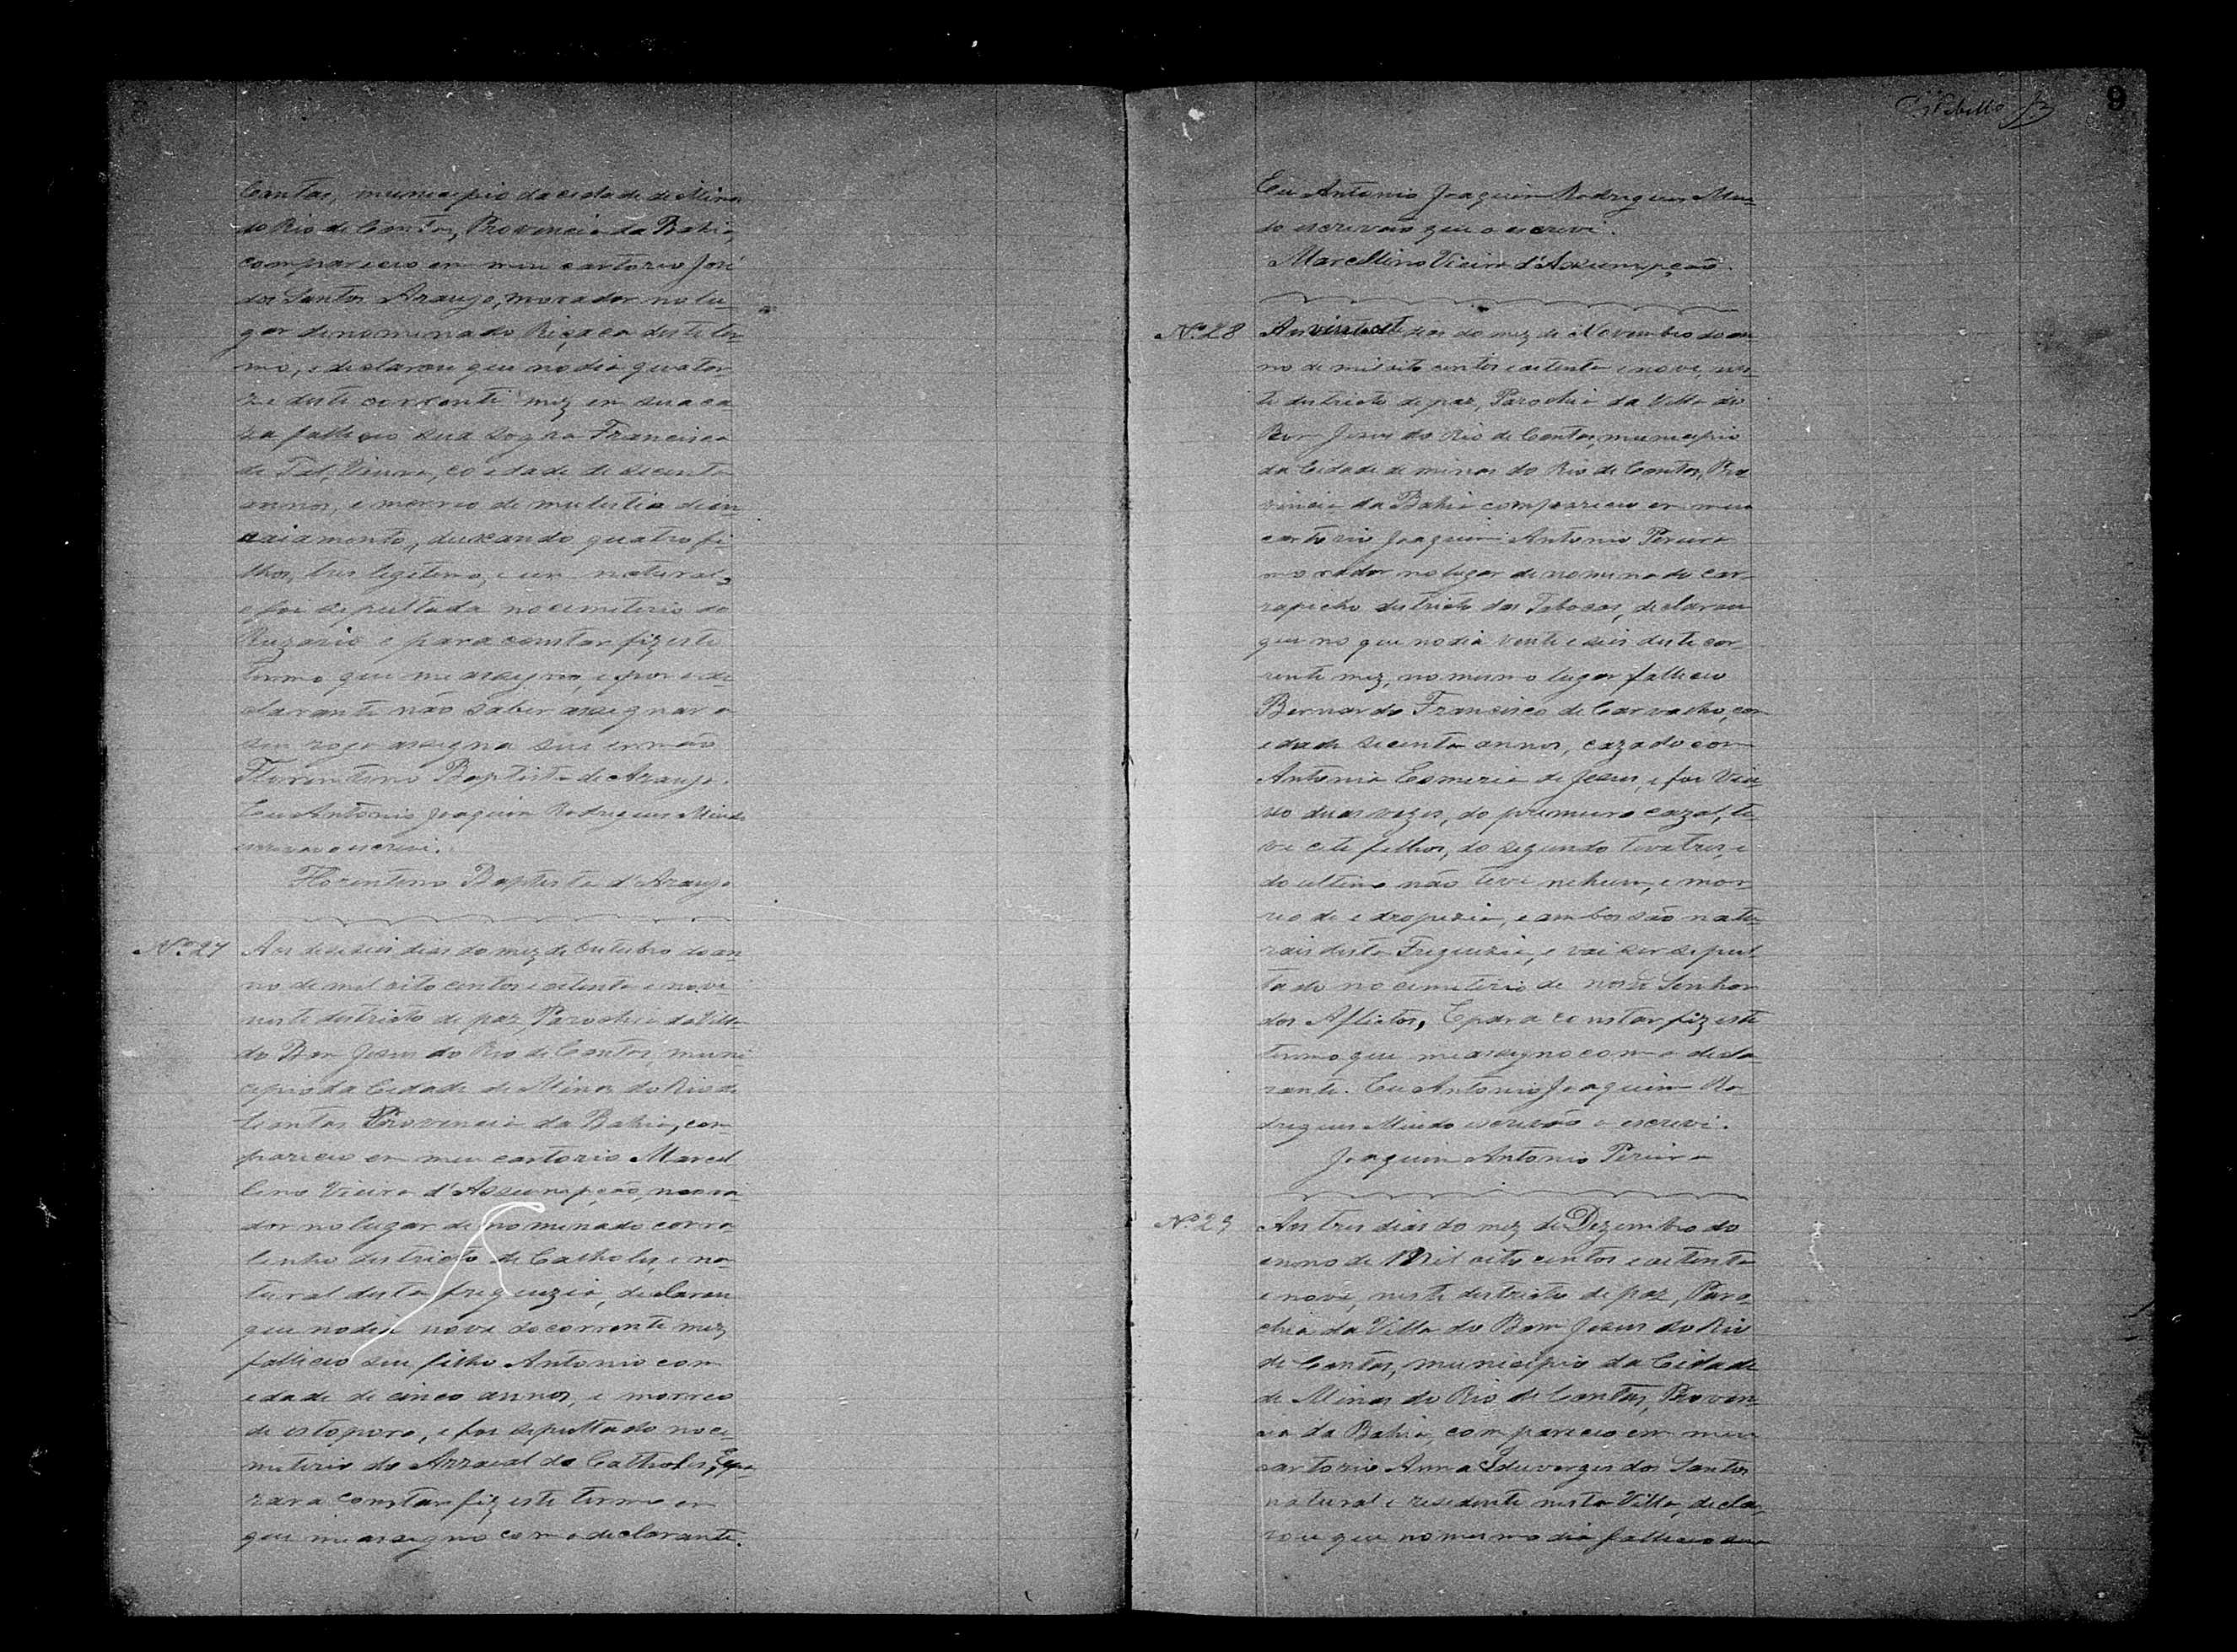 Contas, municipio da cidade de Minas
do Rio de Contas, Provincia da Bahia,
compareceo em meu cartorio José
dos Santos Araujo, morador no lu-
gar denominado deste ter-
mo, e declarou que no dia quator-
ze deste corrente mez em sua ca
za falleceo sua sogra Francisca
de Tal, Viuva, co edade de secenta
annos, e morreo de mulestia
deixando quatro fi
lhos, tres legitimo, e um natural,
e foi sepultada no cemiterio do
Ruzario e para constar fiz este
termo que me assigno, e por o de-
clarante não saber assignar a
seu rogo assigna seu ermão
Florentino Baptista de Araujo.
Eu Antonio Joaquim Rodrigues
escrivão o escrevi.
Florentino Baptista d'Araujo
Nº 27
Aos deseseis dias do mez de Outubro do an
no de mil oito centos e oitenta e nove
neste districto de paz, Parochia da Villa
do Bom Jesus do Rio de Contas, muni
cipio da Cidade de Minas do Rio de
Contas Provincia da Bahia, com-
pareceo em meu cartorio Marcel
lino Vieira d'Assumpção, mora-
dor no lugar denominado corra
linho districto de Catholes, e na-
tural desta freguezia, declarou
que no dia nove do corrente mez
falleceo seu filho Antonio com
edade de cinco annos, e morreo
de estoporo, e foi sepultado no ce-
miterio do Arraial do Catholes,
para constar fiz este termo em
que me assigno com o declarante.
9
Eu Antonio Joaquim Rodrigues
escrivão que o escrevi.
Marcellino Vieira d'Assumpção.
Nº 28
Aos vinte sete dias do mez de Novembro do an
no de mil oito centos e oitenta e nove, nes-
te districto de paz, Parochia da Villa do
Bom Jesus do Rio de Contas, municipio
da Cidade de minas do Rio de Contas, Pro
vincia da Bahia compareceo em meu
cartorio Joaquim Antonio Pereira
morador no lugar denominado car-
rapicho districto das Tabocas, declarou
que no que no dia vente e seis deste cor-
rente mez, no mesmo lugar falleceo
Bernardo Francisco de Carvalho, com
edade secenta annos, cazado com
Antonia Esmeria de Jesus, e foi Viu-
vo duas vezes, do primeiro cazal, te
ve cete filhos, do segundo teve tres, e
do ultimo não teve nehum, e mor-
reo de edropezia, e ambos são natu-
rais desta Freguezia, e vai ser sepul
tado no cemiterio de nosso Senhor
dos Aflictos, E para constar fiz este
termo que me assigno com o decla-
rante. Eu Antonio Joaquim Ro-
drigues escrivão o escrevi.
Joaquim Antonio Pereira
Nº 29
Aos tres dias do mez de Dezembro do
anno de Mil oito centos e oitenta
e nove, neste districto de paz, Paro-
chia da Villa do Bom Jesus do Rio
de Contas, municipio da Cidade
de Minas do Rio de Contas, Provin-
cia da Bahia, compareceo em meu
cartorio Anna Eduverges dos Santos
natural e residente nesta Villa, decla-
rou que no mesmo dia falleceo seu